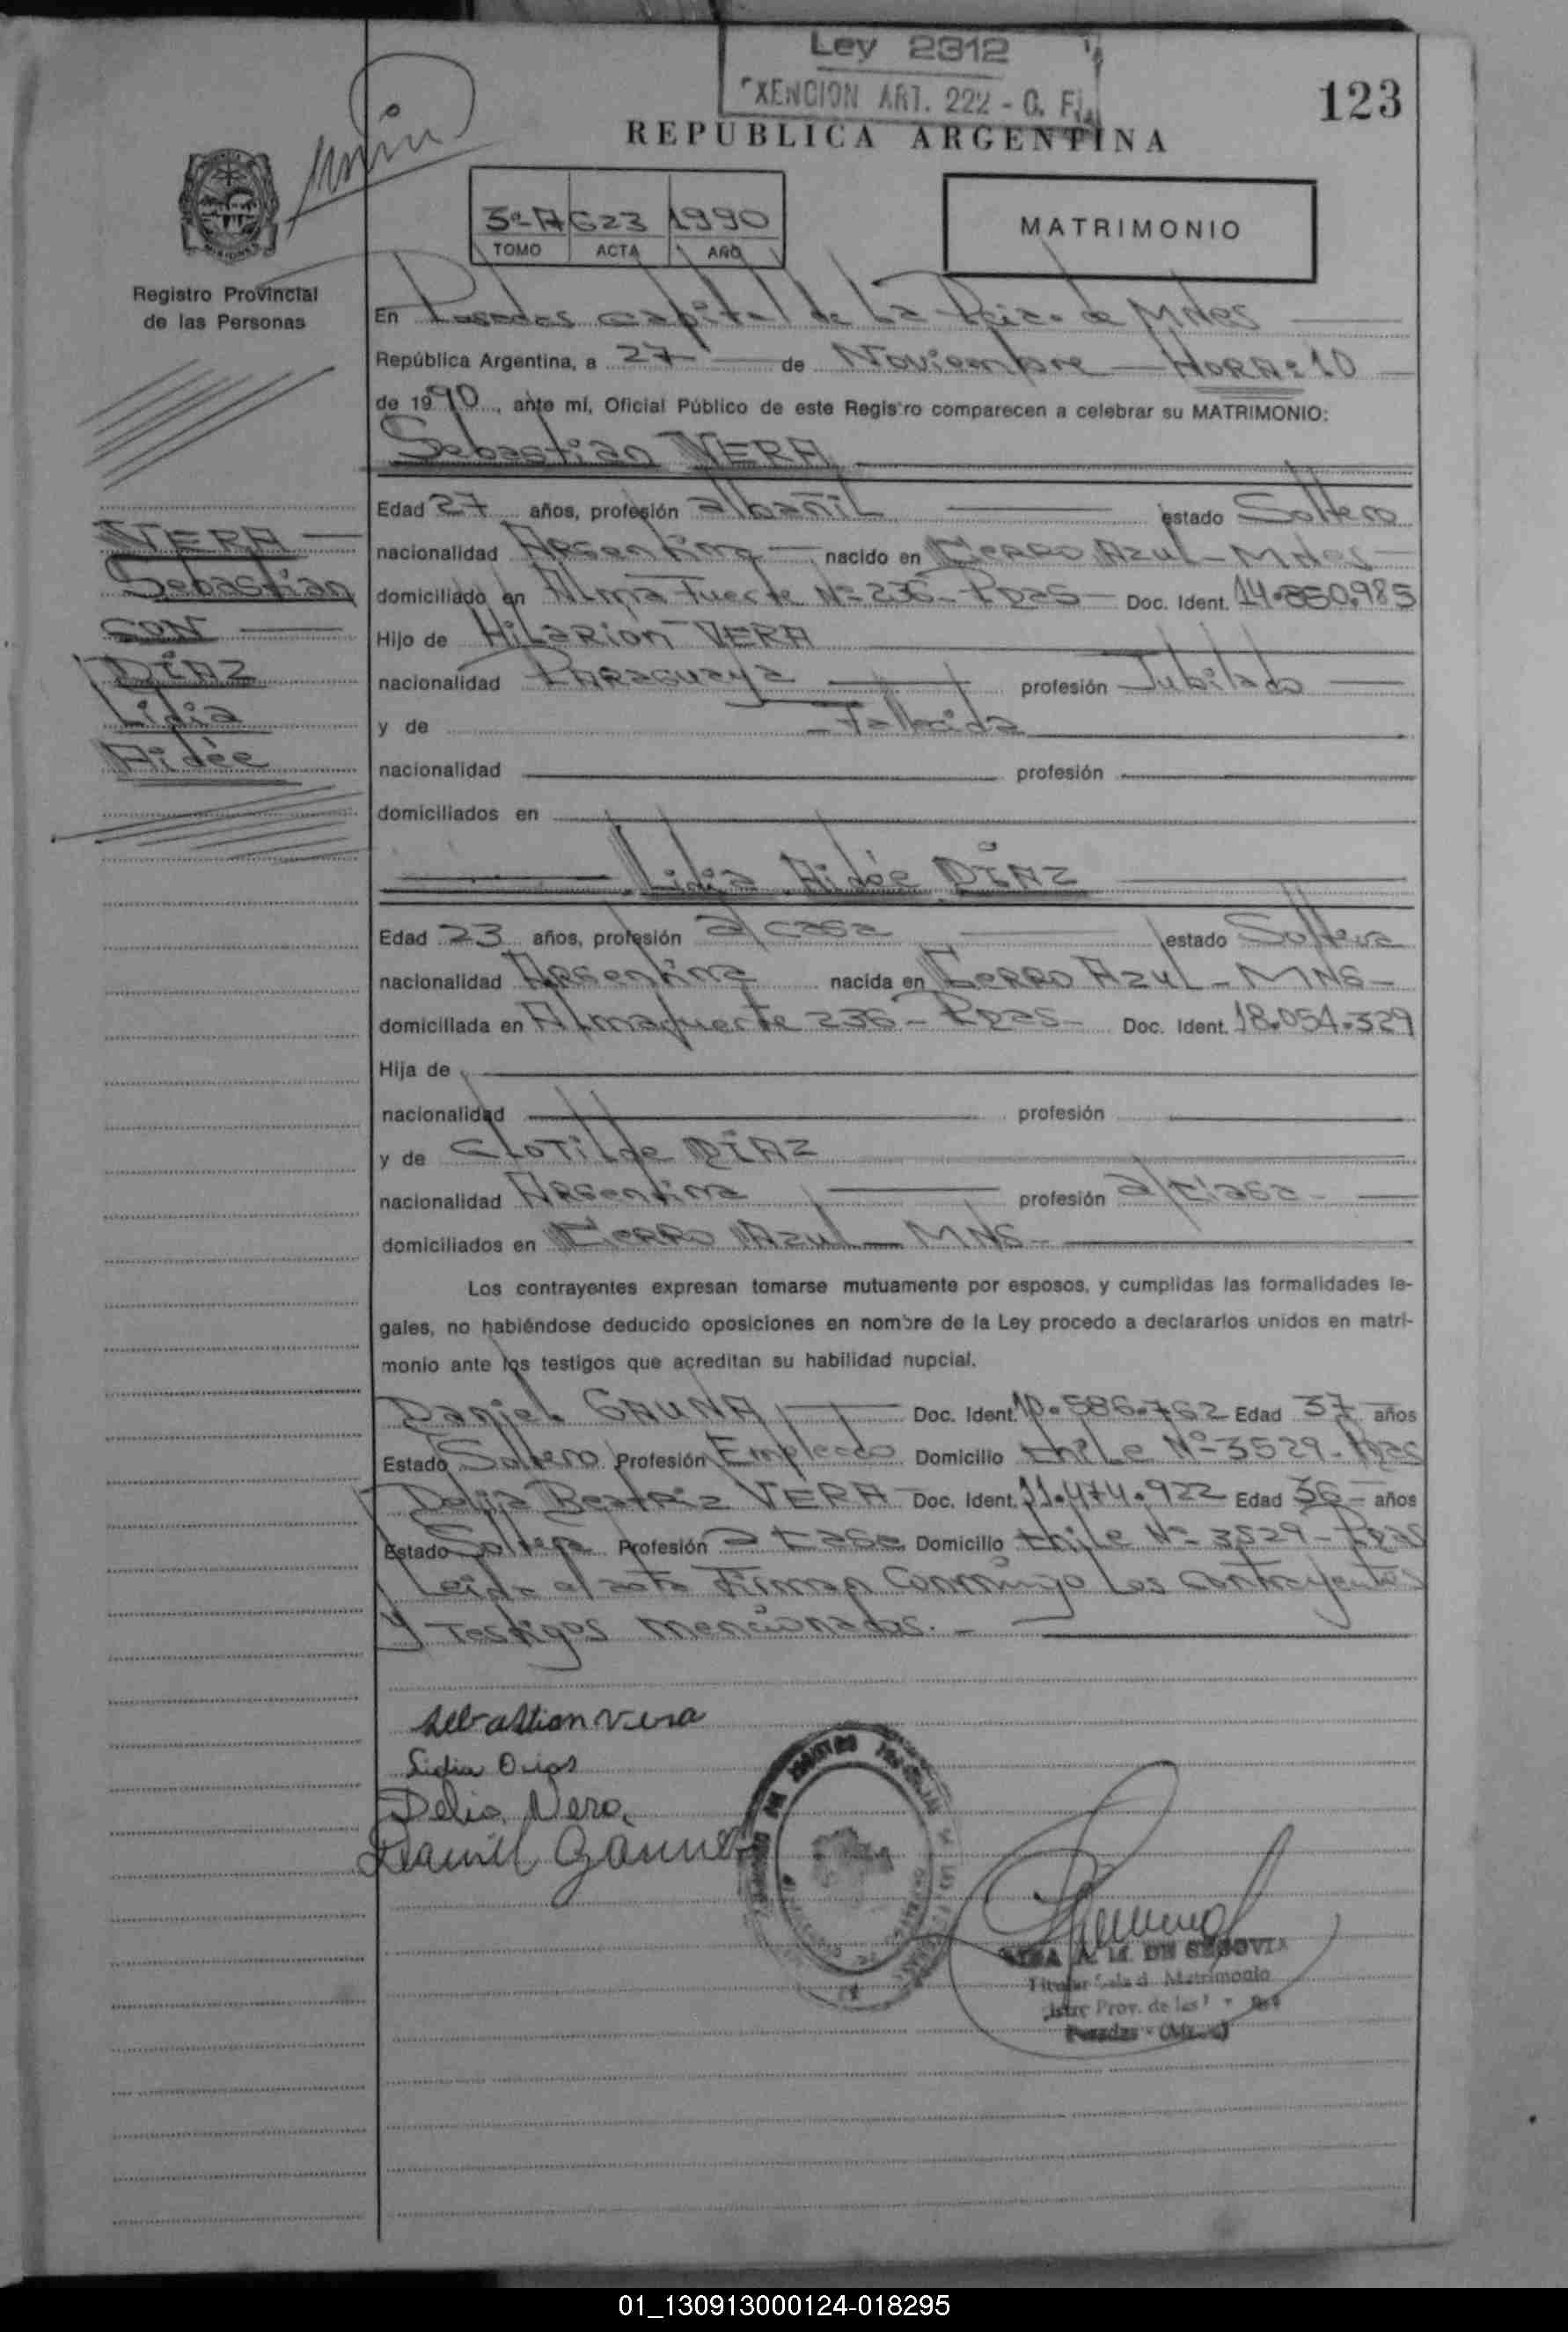 Ley 2312
EXENCION ART. 222 - C. F.
123
REPUBLICA ARGENTINA
3º-A 623 1990
TOMO ACTA AÑO
MATRIMONIO
Registro Provincial
de las Personas
En Posadas capital de la Pcia. de MNes
República Argentina, a 27 de Noviembre HORA: 10
de 1990, ante mí, Oficial Público de este Registro comparecen a celebrar su MATRIMONIO:
Sebastián VERA
Edad 27 años, profesión albañil estado Soltero
nacionalidad Argentina nacido en Cerro Azul - MNes
domiciliado en Alma Fuerte Nº 236 - Pdas - Doc. Ident. 14.860.985
Hijo de Hilarion VERA
nacionalidad Paraguaya profesión Jubilado
y de Fallecida
nacionalidad profesión
domiciliados en
VERA
Sebastián
CON
DÍAZ
Lidia
Aidée
Lidia Aidée DÍAZ
Edad 23 años, profesión a/casa estado Soltera
nacionalidad Argentina nacida en Cerro Azul - MNS -
domiciliada en Almafuerte 236 - Pdas - Doc. Ident. 18.054.329
Hija de
nacionalidad profesión
y de Clotilde DÍAZ
nacionalidad Argentina profesión a/casa
domiciliados en Cerro Azul - MNS -
Los contrayentes expresan tomarse mutuamente por esposos, y cumplidas las formalidades le-
gales, no habiéndose deducido oposiciones en nombre de la Ley procedo a declararlos unidos en matri-
monio ante los testigos que acreditan su habilidad nupcial.
Daniel GAUNA Doc. Ident. 10.586.762 Edad 37 años
Estado Soltero Profesión Empleado Domicilio Chile Nº 3529 - Pdas
Delia Beatriz VERA Doc. Ident. 11.474.922 Edad 36 años
Estado Soltera Profesión a casa Domicilio Chile Nº 3529 - Pdas
Leida el acta Firman Conmigo Los contrayentes
y Testigos mencionados. -
Sebastian Vera
Lidia Dias
Delia Vera
Daniel Gauna
A. M. DE SEGOVIA
Titular Sala d. Matrimonio
Prov. de las
Posadas
01_130913000124-018295